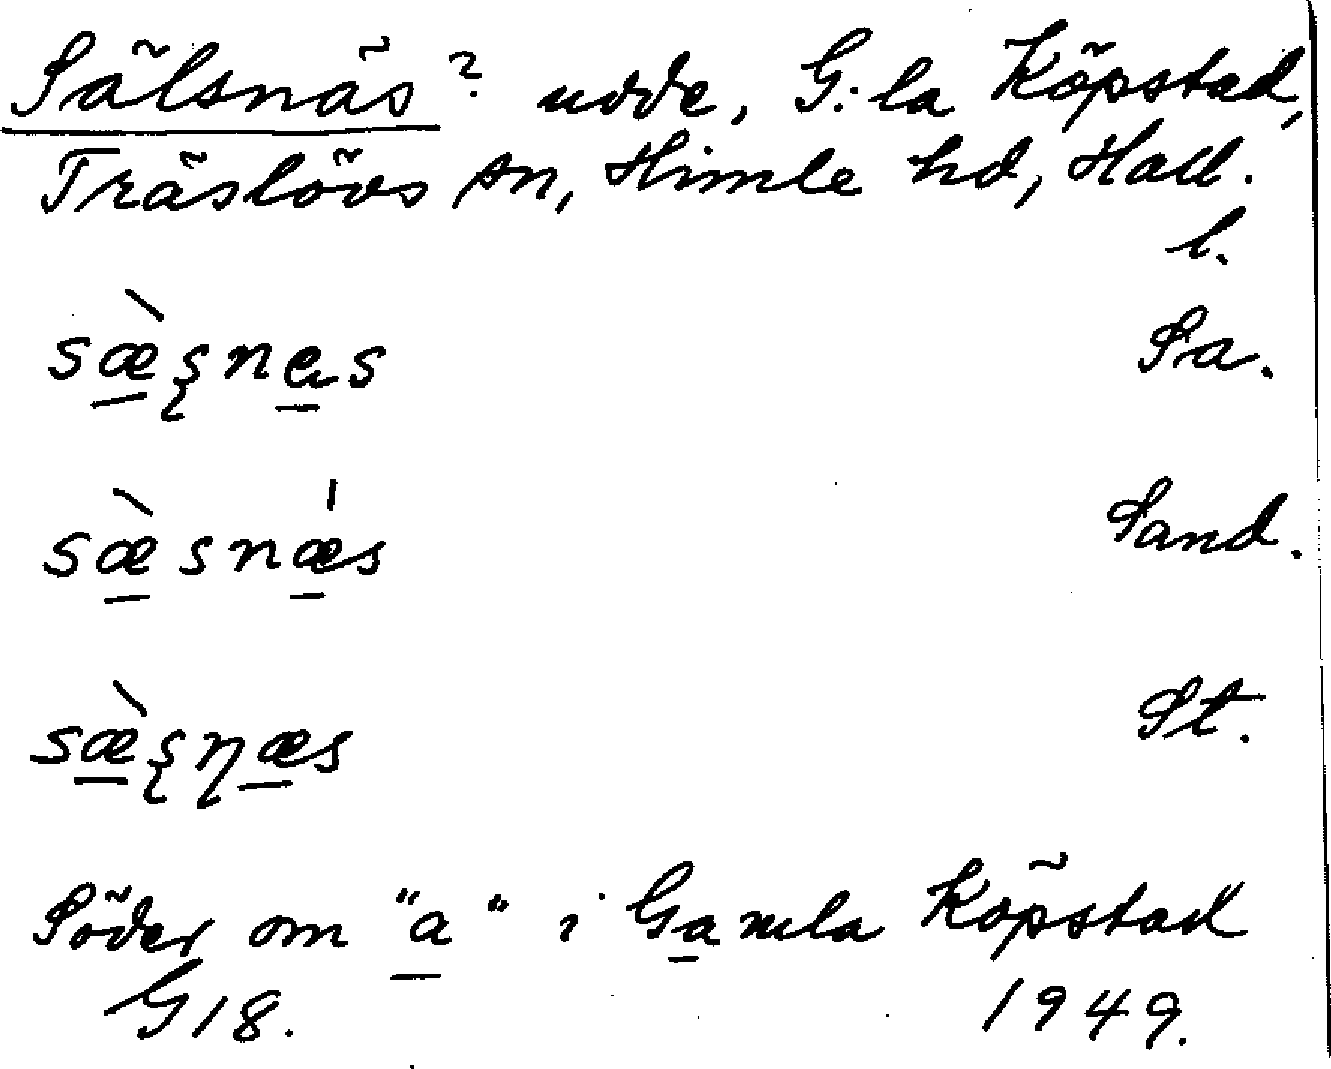 Sälsnäs? udde, G:la Köpstad,
Träslövs sn, Himle hd, Hall.
l.
sæ̠̀ʂne̠s Sa.
sæ̠̀snǽ̠s Sand.
sæ̠̀ʂɳæ̠s St.
Söder om "a̠" i Ga̠mla Köpstad
G18. 1949.